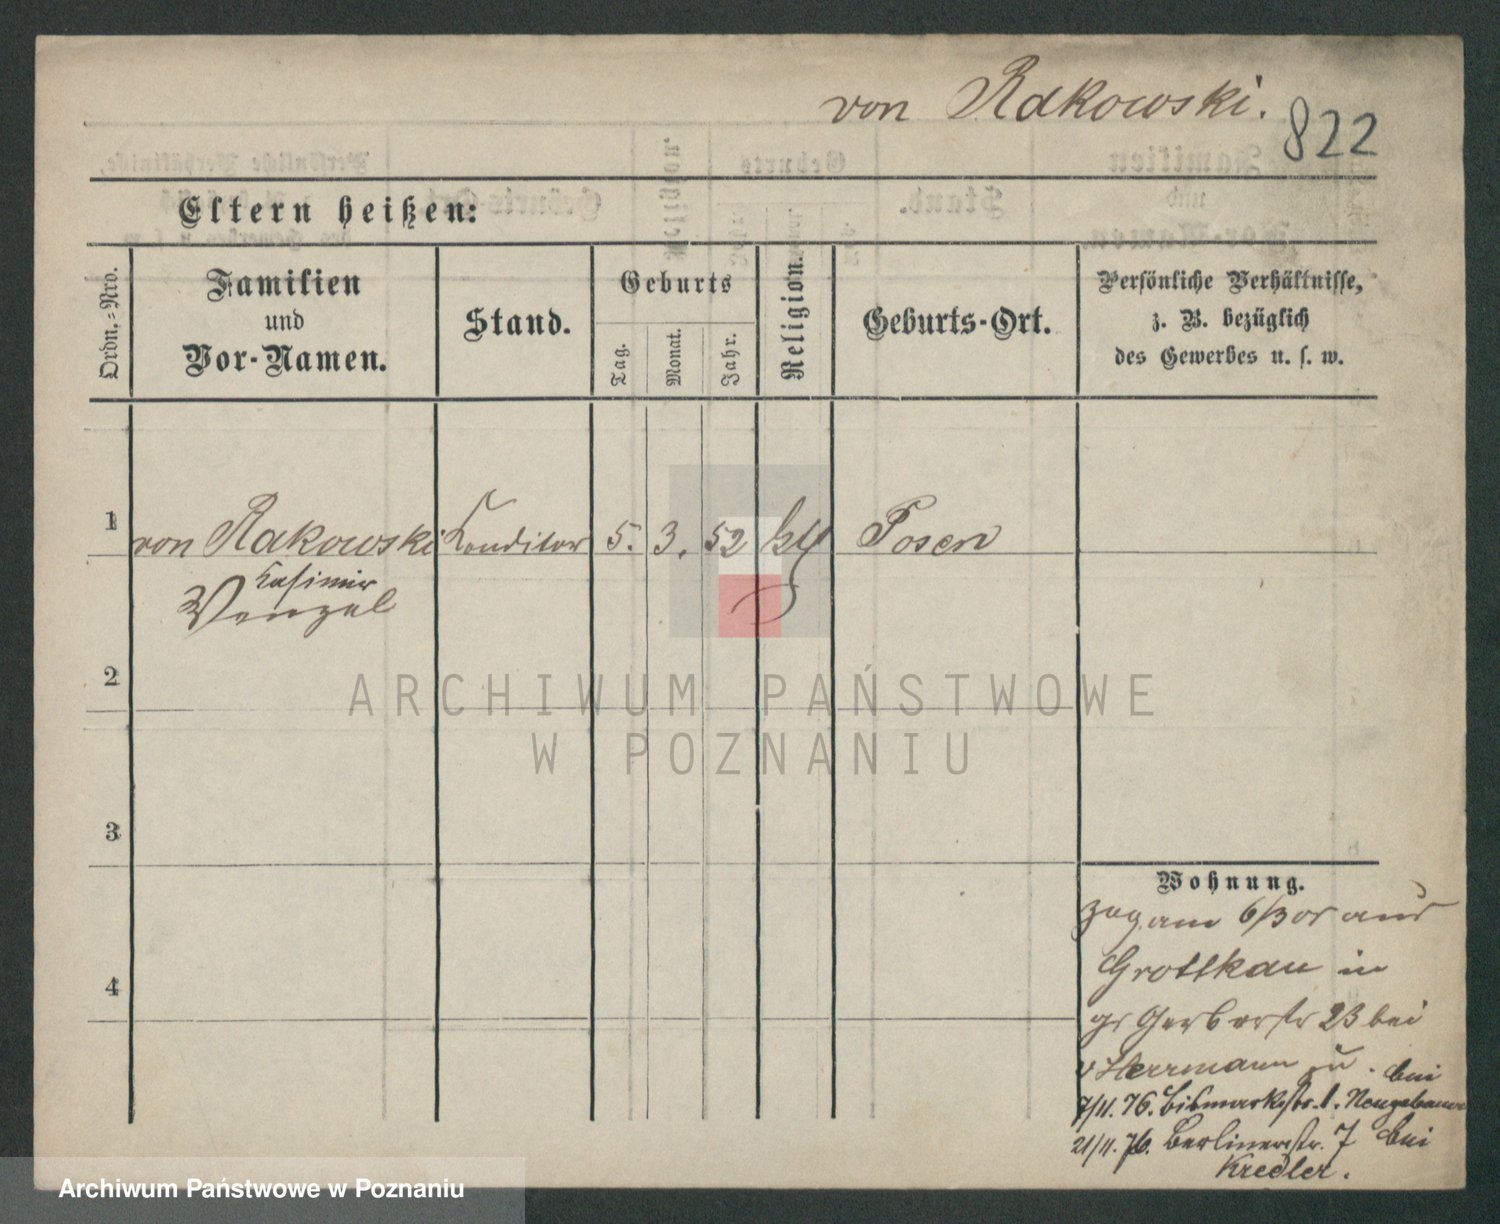 von Rakowski.
822
Eltern heißen:
Ordn.-Nro.
Familien
und
Vor-Namen.
Stand.
Geburts
Tag.
Monat.
Jahr.
Religion.
Geburts-Ort.
Persönliche Verhältnisse,
z. B. bezüglich
des Gewerbes u. s. w.
1 von Rakowski Conditor 5. 3. 52 Posen
Kasimir
Wenzel
2
ARCHIWUM PAŃSTWOWE
W POZNANIU
3
4
Wohnung.
zog am 6/3 aus
Grottkau in
gr Gerberstr 23 bei
Herrmann zu. bei
7/11. 76. Bismarckstr. 1. Neugebauer
21/11. 76. Berlinerstr. 7 bei
Kredler.
Archiwum Państwowe w Poznaniu